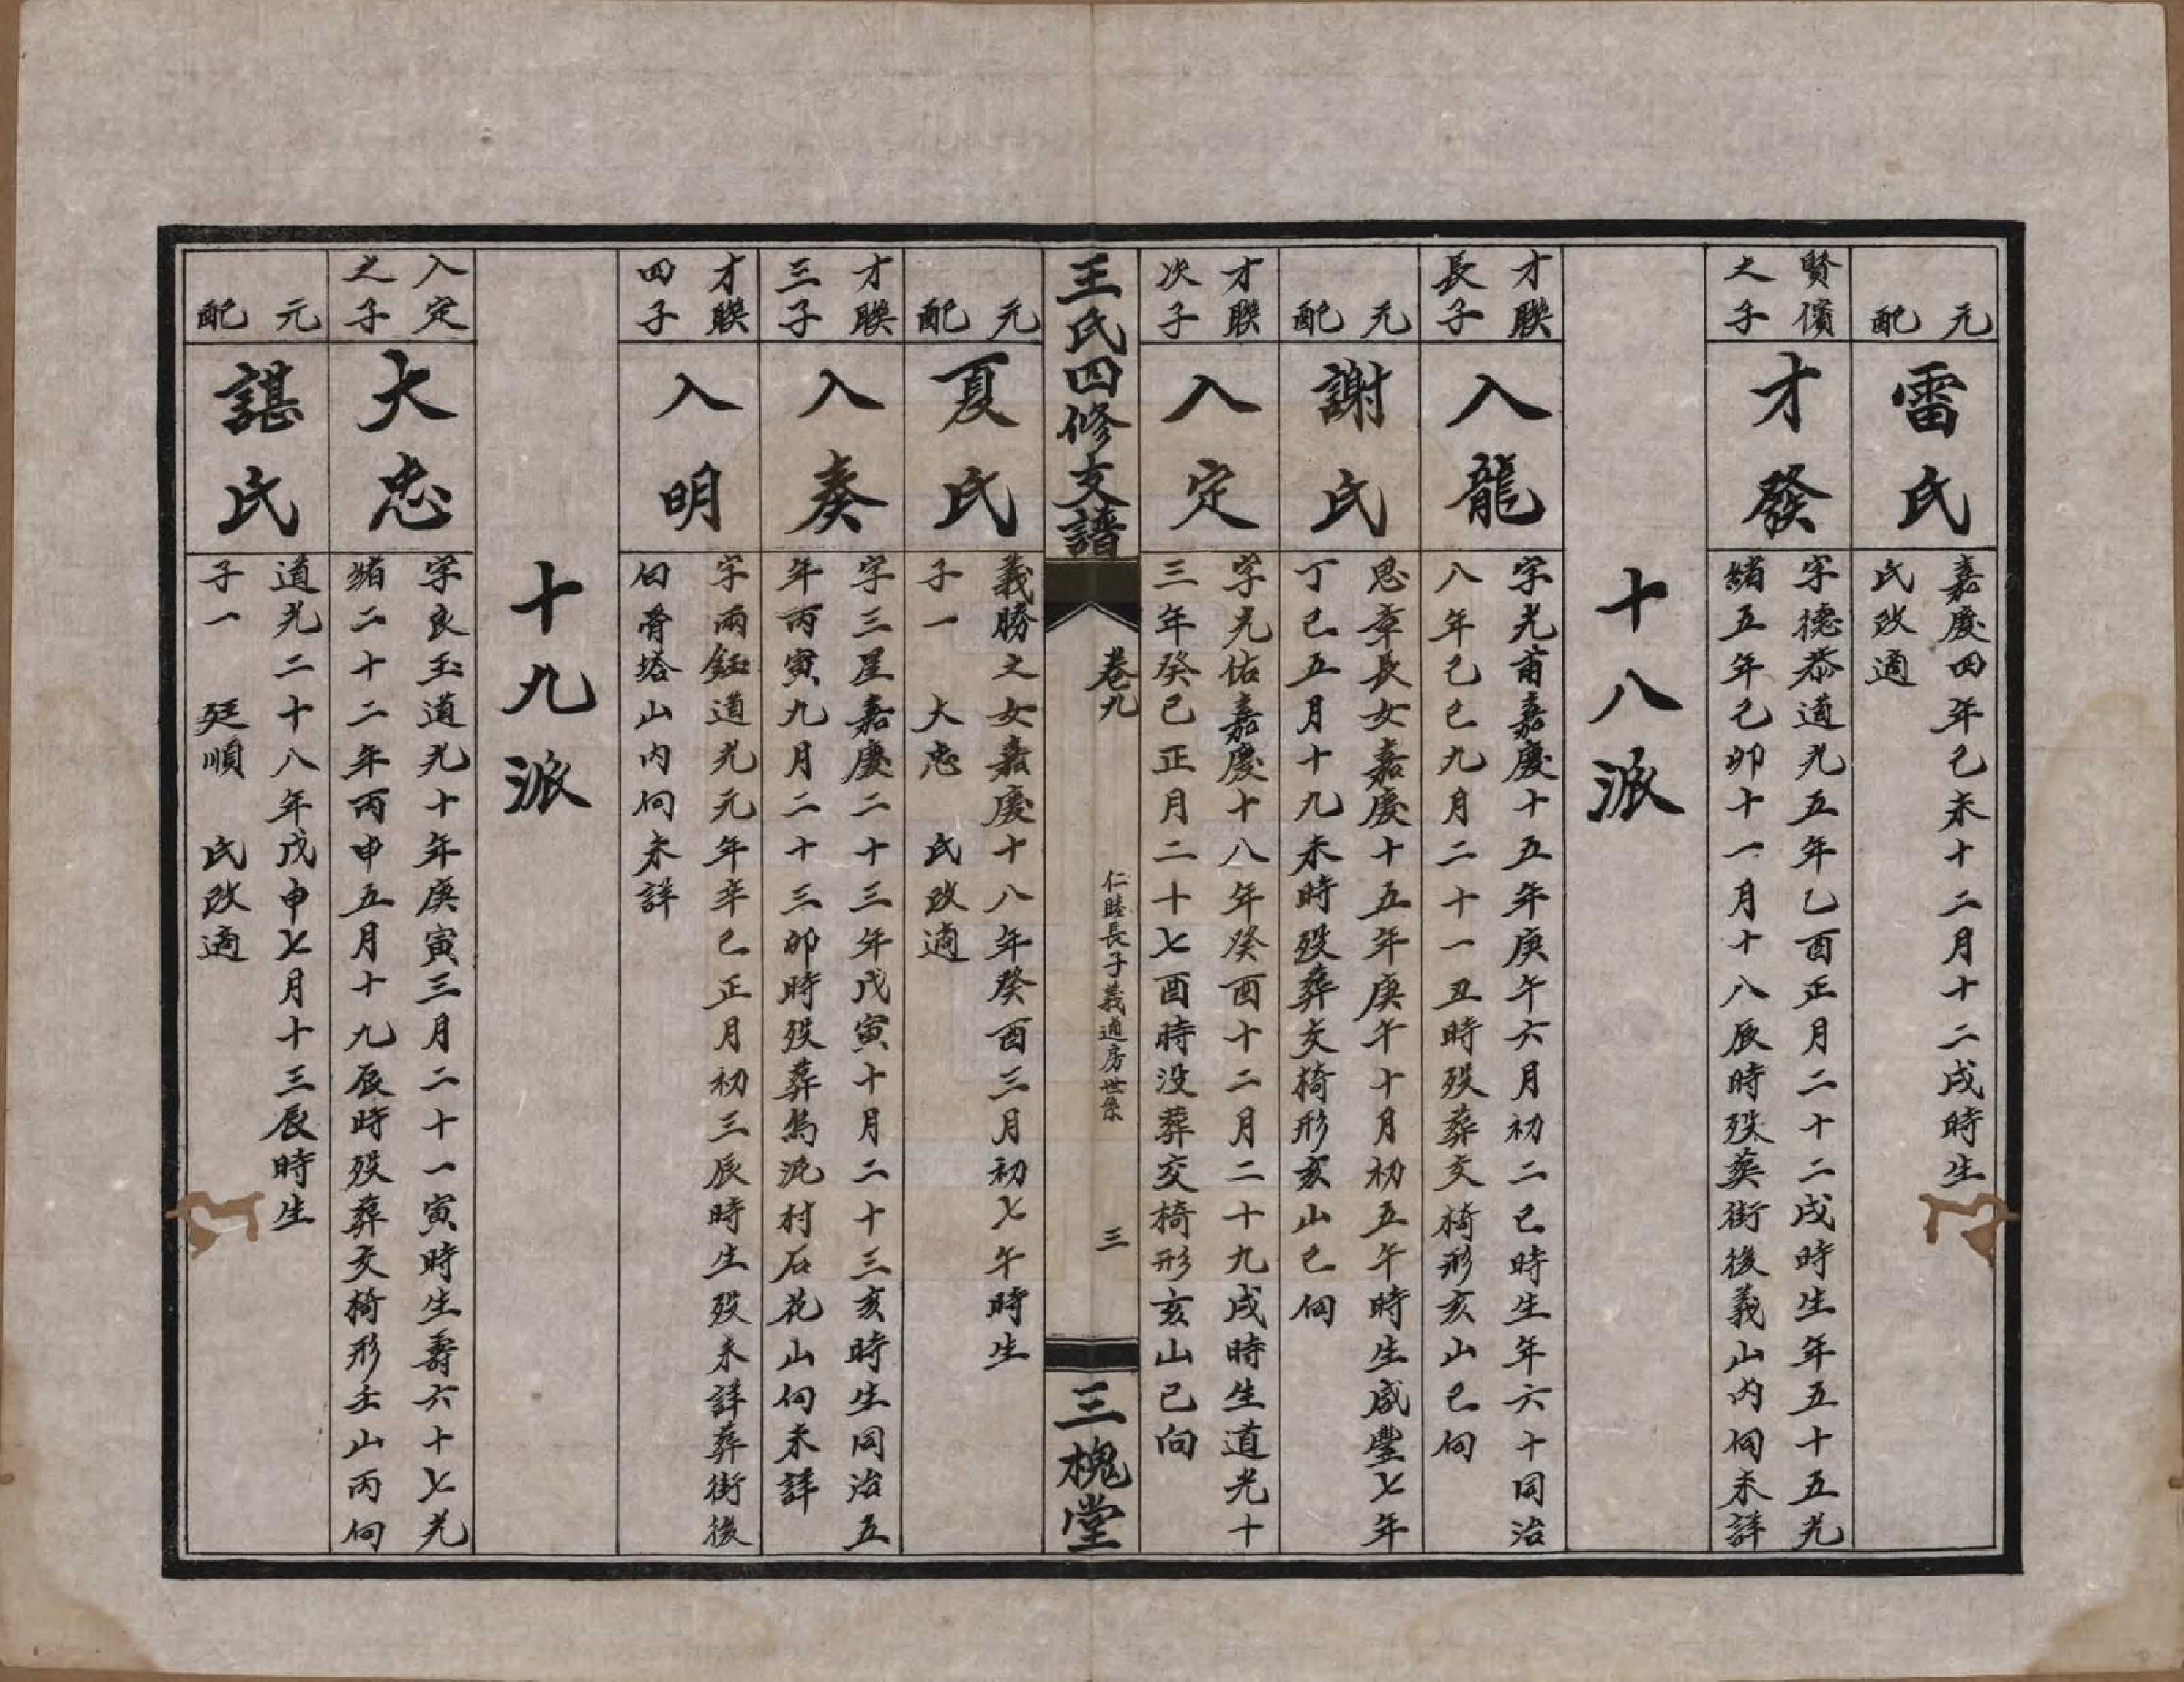 元
配
雷氏
嘉慶四年己未十二月十二戌時生
氏改適
賢儐
之子
才發
字德恭道光五年乙酉正月二十二戌時生年五十五光
緒五年己卯十一月十八辰時歿葵街後義山內向未詳
十八派
才聯
長子
入龍
字光甫嘉慶十五年庚午六月初二巳時生年六十同治
八年己巳九月二十一丑時歿葬交椅形亥山巳向
元
配
謝氏
思章長女嘉慶十五年庚午十月初五午時生咸豐七年
丁巳五月十九未時歿葬交椅形亥山巳向
才聯
次子
入定
字光佑嘉慶十八年癸酉十二月二十九戌時生道光十
三年癸巳正月二十七酉時没葬交椅形亥山巳向
王氏四修支譜
卷九
仁睦長子義道房世系
三
三槐堂
元
配
夏氏
義勝之女嘉慶十八年癸酉三月初七午時生
子一 大忠 氏改適
才聯
三子
入奏
字三星嘉慶二十三年戊寅十月二十三亥時生同治五
年丙寅九月二十三卯時歿葬烏沇村石花山向未詳
才聯
四子
入明
字兩鈺道光元年辛巳正月初三辰時生歿未詳葬街後
白骨塔山內向未詳
十九派
入定
之子
大忠
字良玉道光十年庚寅三月二十一寅時生壽六十七光
緒二十二年丙申五月十九辰時歿葬交椅形壬山丙向
元
配
諶氏
道光二十八年戊申七月十三辰時生
子一 廷順 氏改適